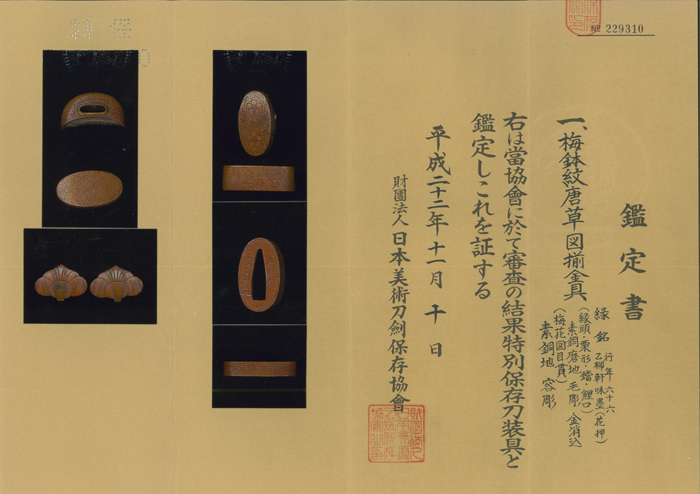 № 229310
鑑定書
一、梅鉢紋唐草図揃金具
縁 銘 行年六十六
乙柳軒味墨(花押)
(縁頭・栗形・鐺・鯉口)
素銅磨地 毛彫 金消込
(梅花図目貫)
素銅地 容彫
右は當協會に於て審査の結果特別保存刀装具と
鑑定しこれを証する
平成二十二年十一月十日
財團法人 日本美術刀劍保存協會